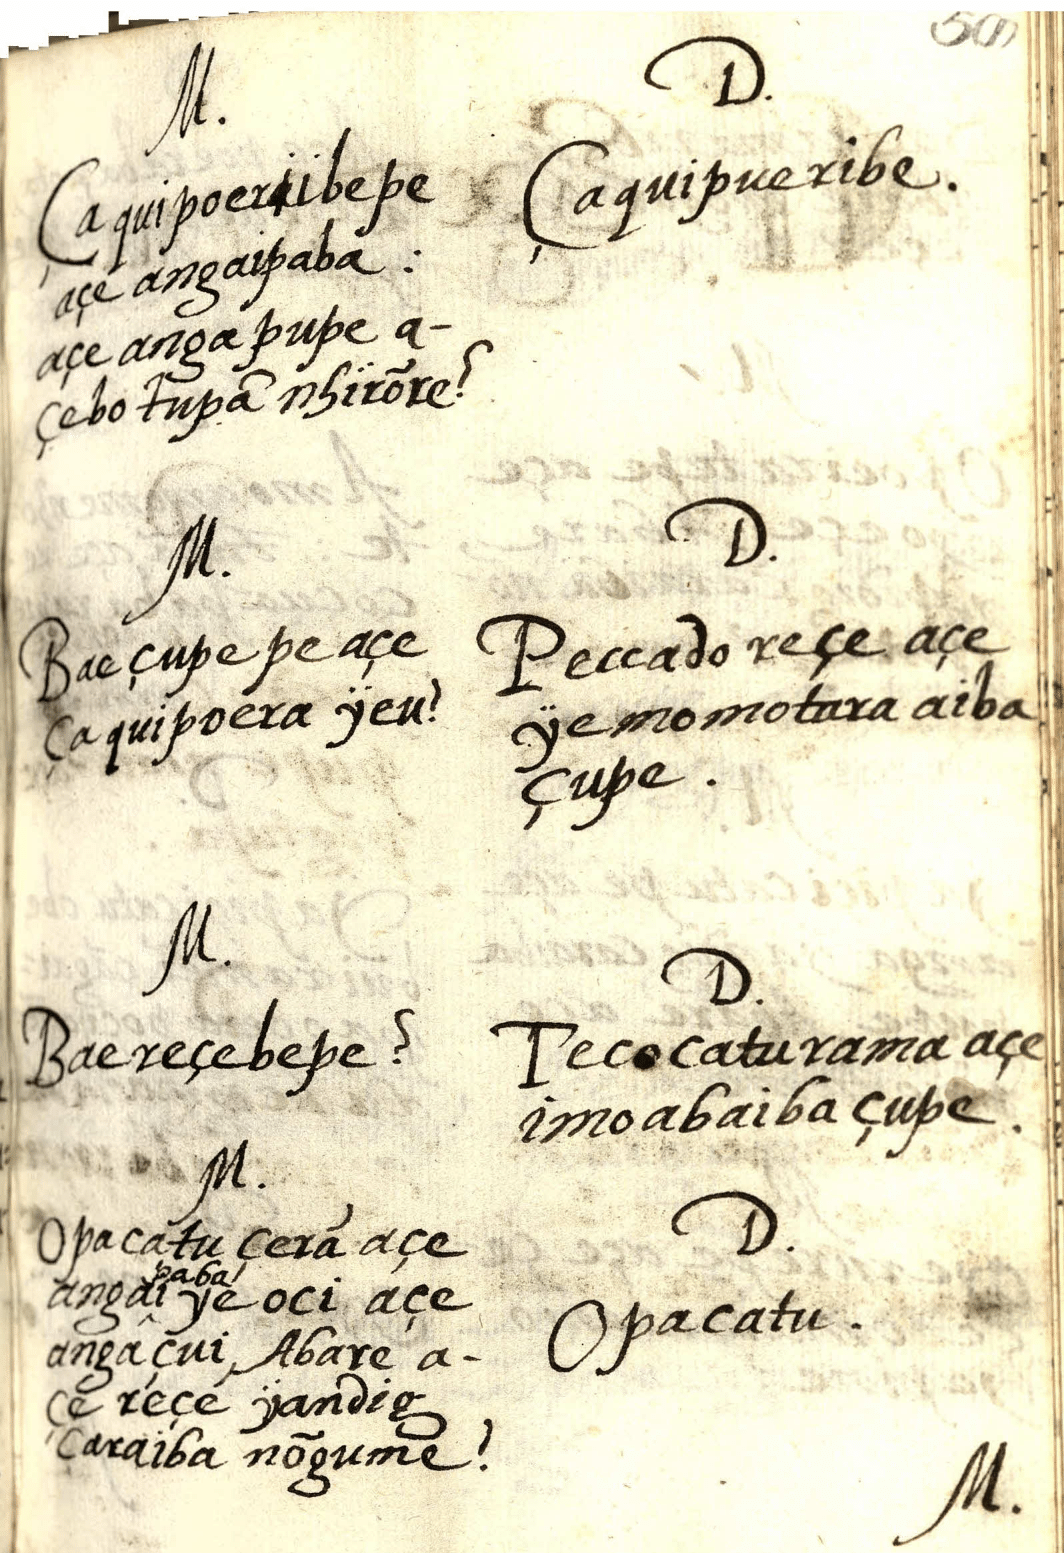 M.
Çaquipoeriibepe
açe angaipaba :
açe anga pupe a-
çebo tupã nhirõre?
D.
Çaquipueribe.
M.
Bae çupe pe açe
çaquipoera ÿeu?
D.
Peccado reçe açe
ÿe momotara aiba
çupe .
M.
Bae reçebepe ?
D.
Tecocaturama açe
imoabaiba çupe .
M.
Opacatu çerã açe
paba
angai ÿe oci açe
angâ çui, Abare a-
çe reçe ÿandig
caraiba nõgume ?
D.
Opacatu .
M.